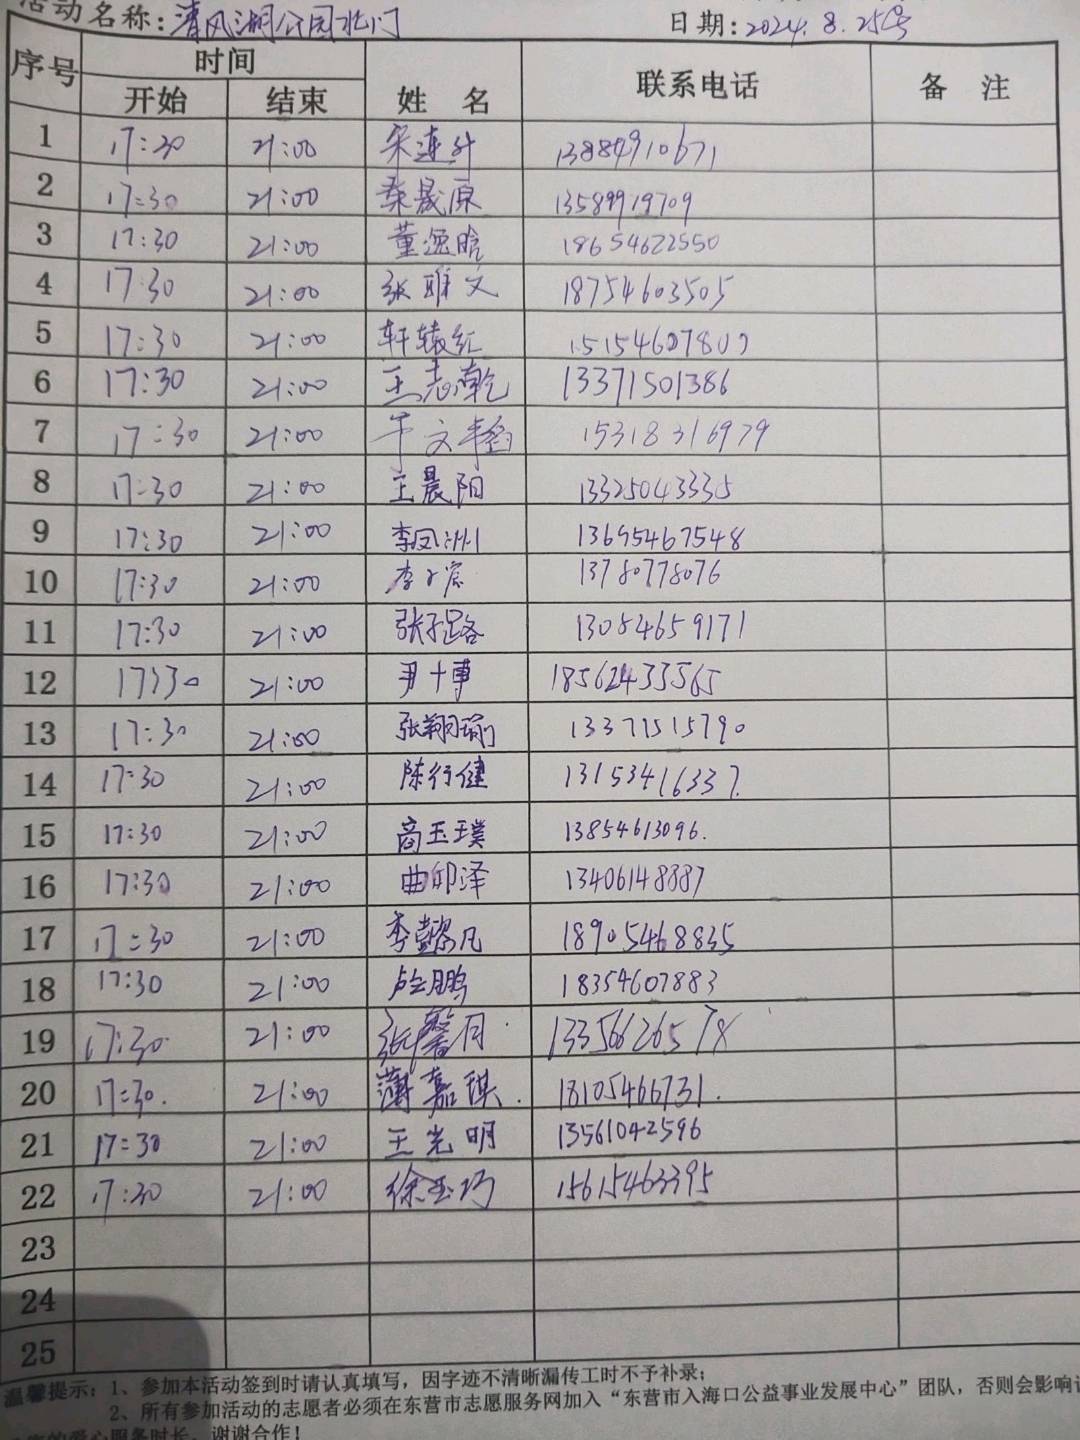 活动名称:清风湖公园北门 日期:2024.8.25号
序号 时间 姓 名 联系电话 备 注
开始 结束
1 17:30 21:00 宋连升 13884910671
2 17:30 21:00 桑晟原 13589919709
3 17:30 21:00 董逸晗 18654622550
4 17:30 21:00 张雅文 18754603505
5 17:30 21:00 轩辕红 15154607809
6 17:30 21:00 王志乾 13371501386
7 17:30 21:00 15318316979
8 17:30 21:00 王晨阳 13325043335
9 17:30 21:00 李凤洲 13695467548
10 17:30 21:00 李子宸 13780778076
11 17:30 21:00 张子路 13084659171
12 17:30 21:00 尹十事 18562433565
13 17:30 21:00 张翔瑜 13371515790
14 17:30 21:00 陈行健 13153416337.
15 17:30 21:00 高玉璞 13854613096.
16 17:30 21:00 曲卯泽 13406148887
17 17:30 21:00 李懿凡 18905468835
18 17:30 21:00 鹏 18354607883
19 17:30 21:00 张馨月 13356626578
20 17:30. 21:00 薄嘉琪. 18105466731.
21 17:30 21:00 王光明 13561042596
22 17:30 21:00 徐玉巧 15615463395
23
24
25
温馨提示: 1、参加本活动签到时请认真填写，因字迹不清晰漏传工时不予补录；
2、所有参加活动的志愿者必须在东营市志愿服务网加入“东营市入海口公益事业发展中心”团队，否则会影响
的爱心服务时长，谢谢合作！